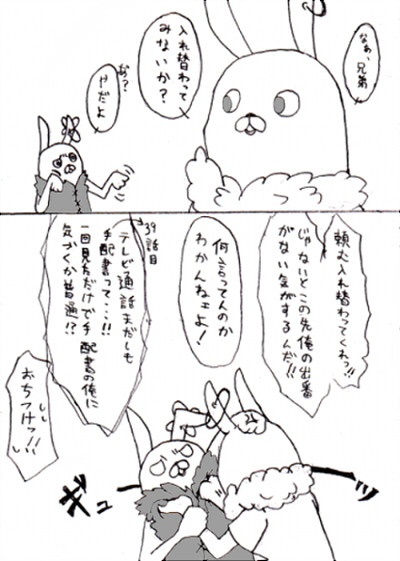 なぁ、兄弟
入れ替わって
みないか?
あ?
やだよ
頼む入れ替わってくれっ!!
じゃないとこの先俺の出番
がない気がするんだ!!
何言ってんのか
わかんねェよ!
39話目
テレビ通話まだしも
手配書って…!!
一回見ただけで手配書の俺に
気づくか普通!?
おちつけっ!!
ギュ
ッ